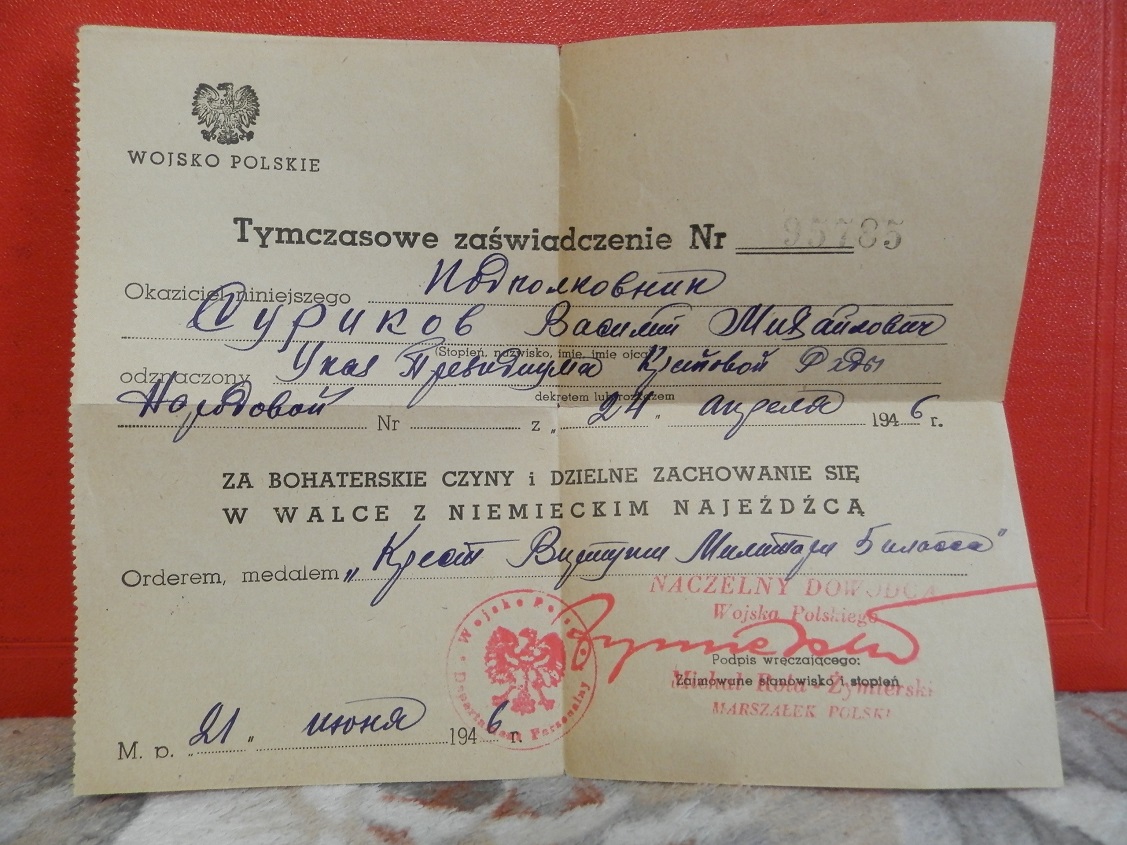 WOJSKO POLSKIE
Tymczasowe zaświadczenie Nr 95785
Okaziciel niniejszego Подполковник
Суриков Василий Михайлович
(Stopień, nazwisko, imię, imię ojca)
odznaczony Указ Президиума Крайовой Рады
dekretem lub rozkazem
Народовой Nr z „ 24 " апреля 1946 r.
ZA BOHATERSKIE CZYNY i DZIELNE ZACHOWANIE SIĘ
W WALCE Z NIEMIECKIM NAJEŹDŹCĄ
Orderem, medalem „Крест Виртути Милитари 5 класса"
NACZELNY DOWÓDCA
Wojska Polskiego
Podpis wręczającego:
Zajmowane stanowisko i stopień
Michał Rola-Żymierski
MARSZAŁEK POLSKI
Wojsko Polskie
Departament Personalny
M. p. „21" июня 1946 r.